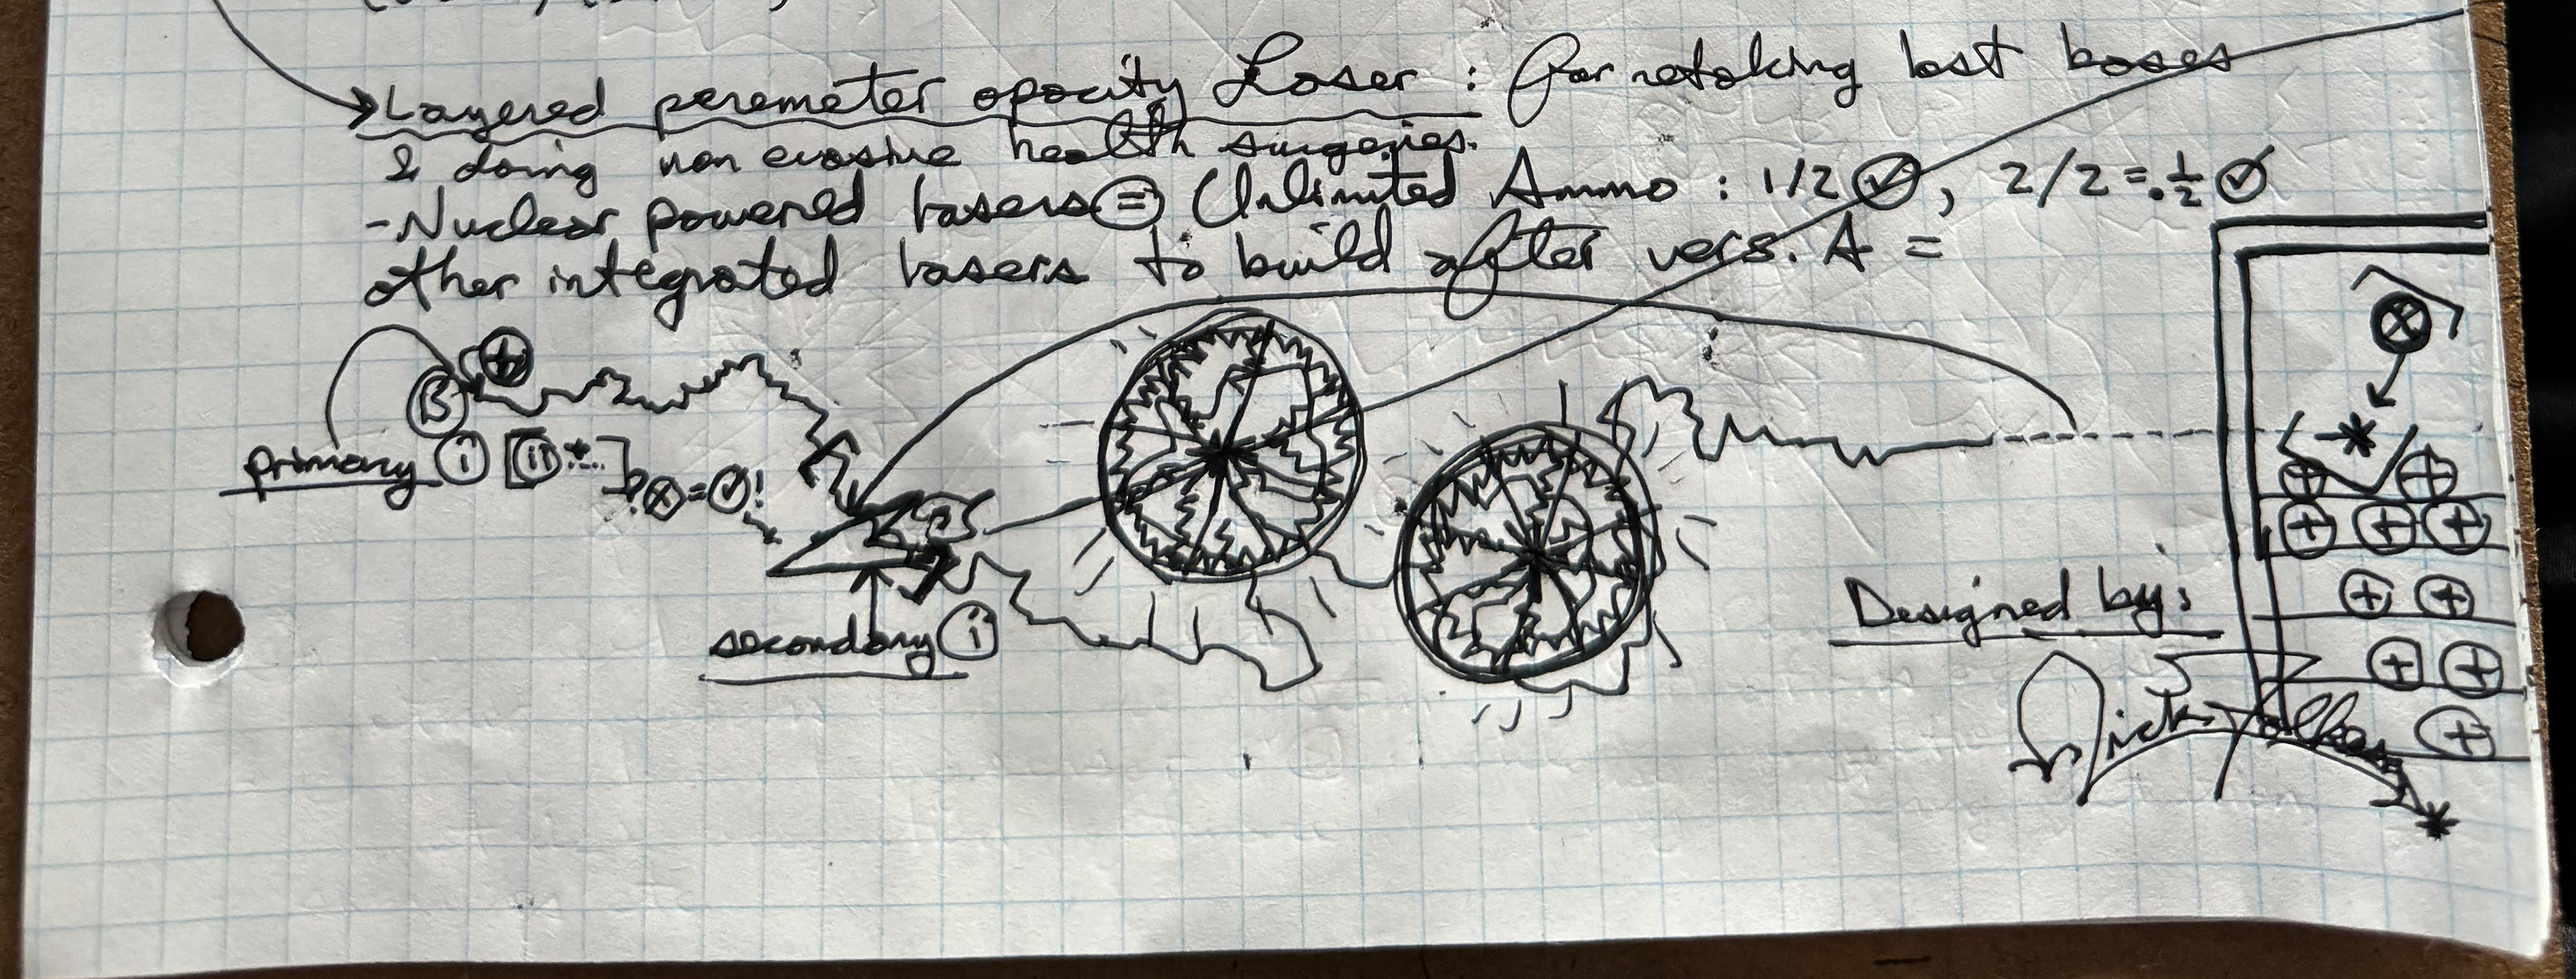 Layered peremeter opacity Laser : for retaking lost bases
& doing non evasive health surgeries.
- Nuclear powered lasers = Unlimited Ammo : 1/2 ✓, 2/2 = . 1/2 ✓
other integrated lasers to build after vers. A =
B +
primary i ii
? ⊗ = ✓ !
secondary i
Designed by:
Nick